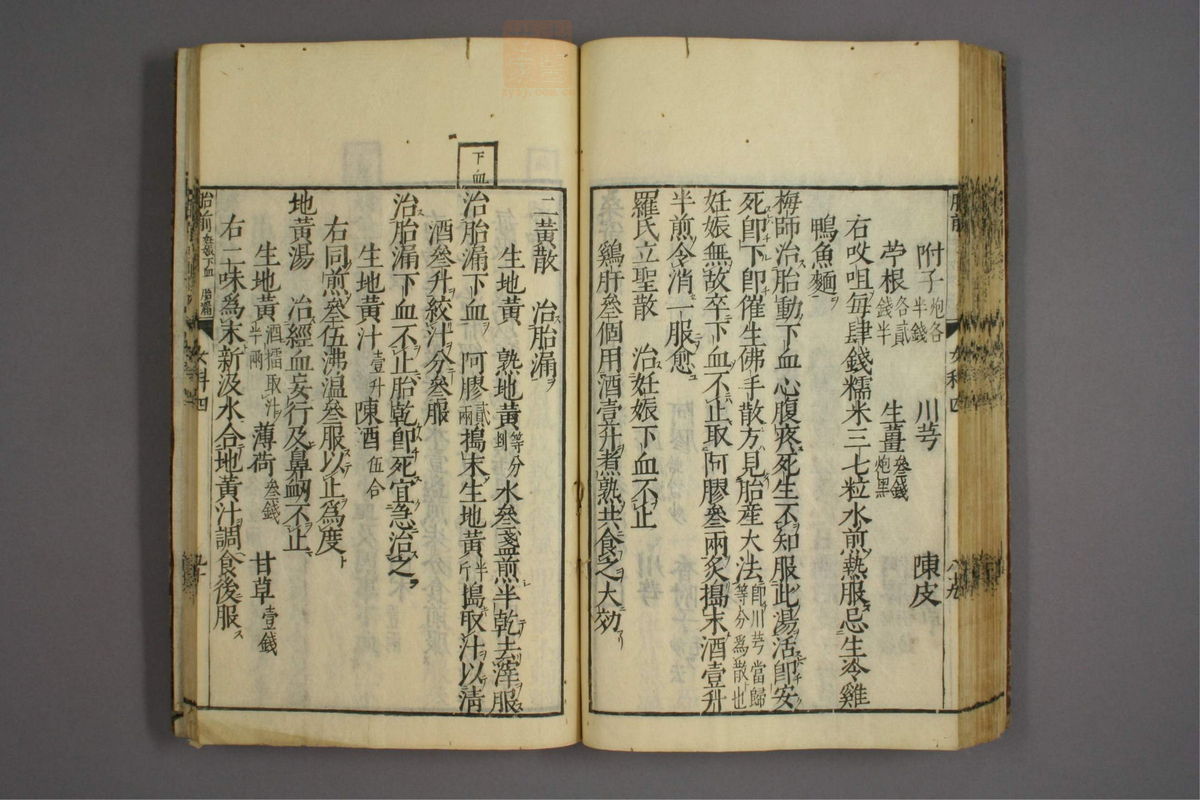 附子炮各半錢　川芎　陳皮
苧根各貳錢半　生薑叄錢炮黑
右㕮咀每肆錢糯米三七粒水煎熱服忌生冷雞
鴨魚麵
梅師治胎動下血心腹疼死生不知服此湯活卽安
死卽下卽催生佛手散方見胎産大法卽川芎當歸等分爲散也
妊娠無故卒下血不止取阿膠叄兩炙搗末酒壹升
半煎令消一服愈
羅氏立聖散　治妊娠下血不止
鷄肝叄個用酒壹升煮熟共食之大効
二黃散　治胎漏
生地黃　熟地黃等分剉水叄盞煎半乾去滓服
下血
治胎漏下血　阿膠貳兩搗末生地黃半斤搗取汁以淸
酒叄升絞汁分叄服
治胎漏下血不止胎乾卽死宜急治之
生地黃汁壹升陳酒伍合
右同煎叄伍沸溫叄服以止爲度
地黃湯　治經血妄行及鼻衂不止
生地黃酒擂取汁半兩　薄荷叄錢　甘草壹錢
右二味爲末新汲水合地黃汁調食後服
胎前　下血　女科四